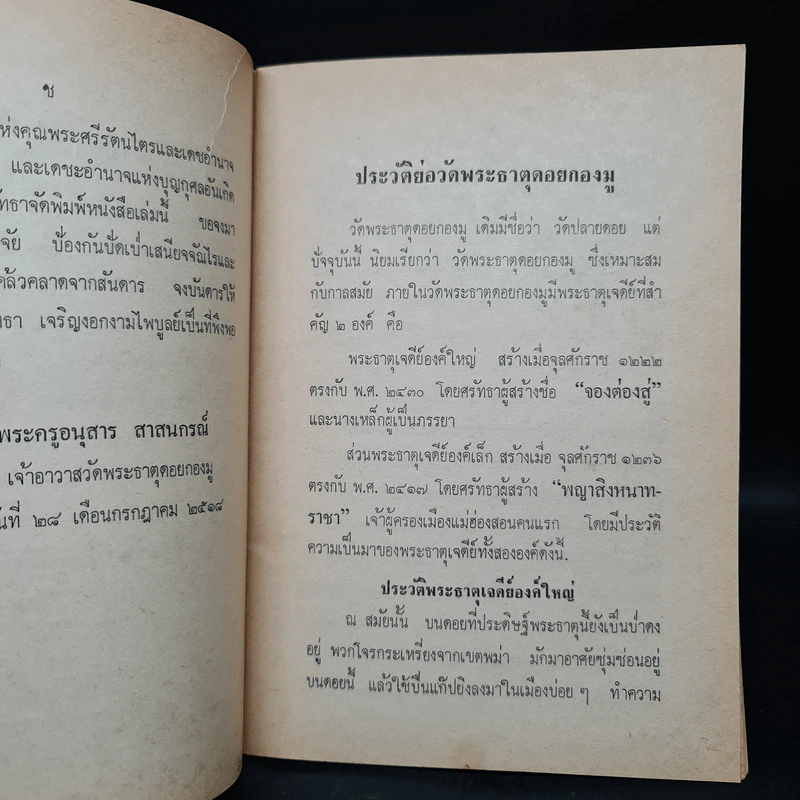 ช
ห่งคุณพระศรีรัตนไตรและเดชอำนาจ
และเดชะอำนาจแห่งบุญกุศลอันเกิด
ัทธาจัดพิมพ์หนังสือเล่มนี้ ขอจงมา
จัย ป้องกันปัดเป่าเสนียจจัญไรและ
คล้วคลาดจากสันดาร จงบันดารให้
ทธา เจริญงอกงามไพบูลย์เป็นที่พึงพอ
พระครูอนุสาร สาสนกรณ์
เจ้าอาวาสวัดพระธาตุดอยกองมู
วันที่ ๒๘ เดือนกรกฎาคม ๒๕๑๘
ประวัติย่อวัดพระธาตุดอยกองมู
วัดพระธาตุดอยกองมู เดิมมีชื่อว่า วัดปลายดอย แต่
ปัจจุบันนี้ นิยมเรียกว่า วัดพระธาตุดอยกองมู ซึ่งเหมาะสม
กับกาลสมัย ภายในวัดพระธาตุดอยกองมูมีพระธาตุเจดีย์ที่สำ
คัญ ๒ องค์ คือ
พระธาตุเจดีย์องค์ใหญ่ สร้างเมื่อจุลศักราช ๑๒๒๒
ตรงกับ พ.ศ. ๒๔๓๐ โดยศรัทธาผู้สร้างชื่อ “จองต่องสู่”
และนางเหล็กผู้เป็นภรรยา
ส่วนพระธาตุเจดีย์องค์เล็ก สร้างเมื่อ จุลศักราช ๑๒๓๖
ตรงกับ พ.ศ. ๒๔๑๗ โดยศรัทธาผู้สร้าง “พญาสิงหนาท-
ราชา” เจ้าผู้ครองเมืองแม่ฮ่องสอนคนแรก โดยมีประวัติ
ความเป็นมาของพระธาตุเจดีย์ทั้งสององค์ดังนี้.
ประวัติพระธาตุเจดีย์องค์ใหญ่
ณ สมัยนั้น บนดอยที่ประดิษฐ์พระธาตุนี้ยังเป็นป่าดง
อยู่ พวกโจรกระเหรี่ยงจากเขตพม่า มักมาอาศัยซุ่มซ่อนอยู่
บนดอยนี้ แล้วใช้ปืนแก๊ปยิงลงมาในเมืองบ่อย ๆ ทำความ